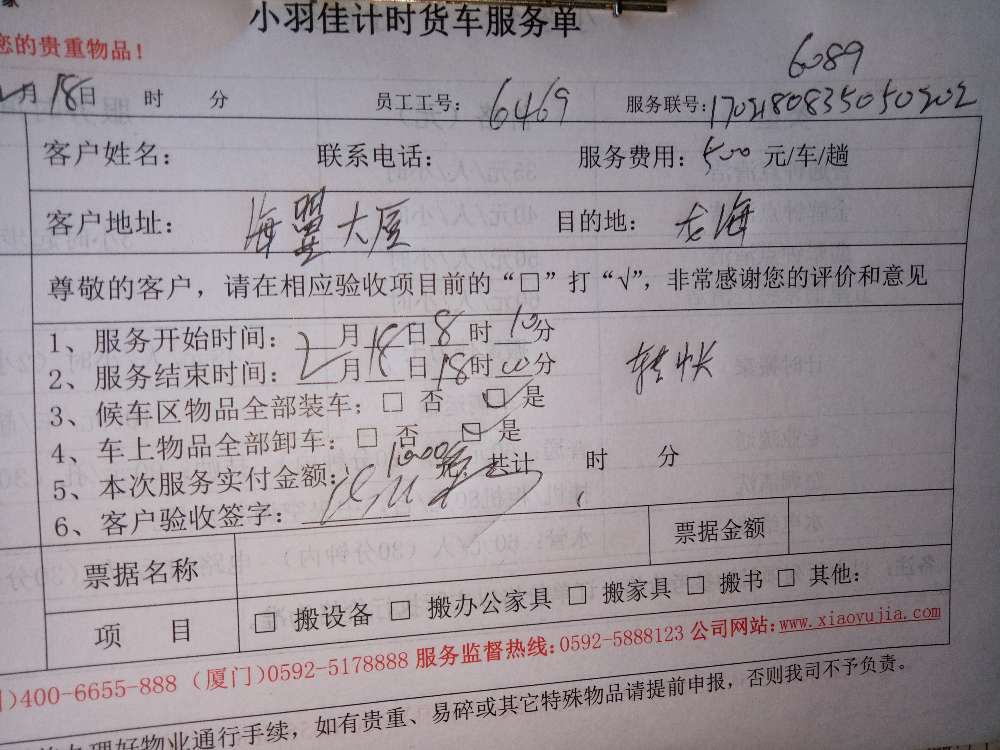 家
小羽佳计时货车服务单
您的贵重物品!
6089
2月18日 时 分 员工工号: 6469 服务联号:1702180835050202
客户姓名: 联系电话: 服务费用: 500 元/车/趟
客户地址: 海翼大厦 目的地:
尊敬的客户，请在相应验收项目前的“□”打“√”，非常感谢您的评价和意见
1、服务开始时间: 2月18日8时10分
2、服务结束时间: 2月18日18时00分
转帐
3、候车区物品全部装车: □ 否 □ 是
4、车上物品全部卸车: □ 否 □ 是
5、本次服务实付金额: 1000元 共计 时 分
6、客户验收签字:
票据名称 票据金额
项 目 □ 搬设备 □ 搬办公家具 □ 搬家具 □ 搬书 □ 其他:
)400-6655-888 (厦门)0592-5178888 服务监督热线:0592-5888123 公司网站:www.xiaoyujia.com
办理好物业通行手续，如有贵重、易碎或其它特殊物品请提前申报，否则我司不予负责。